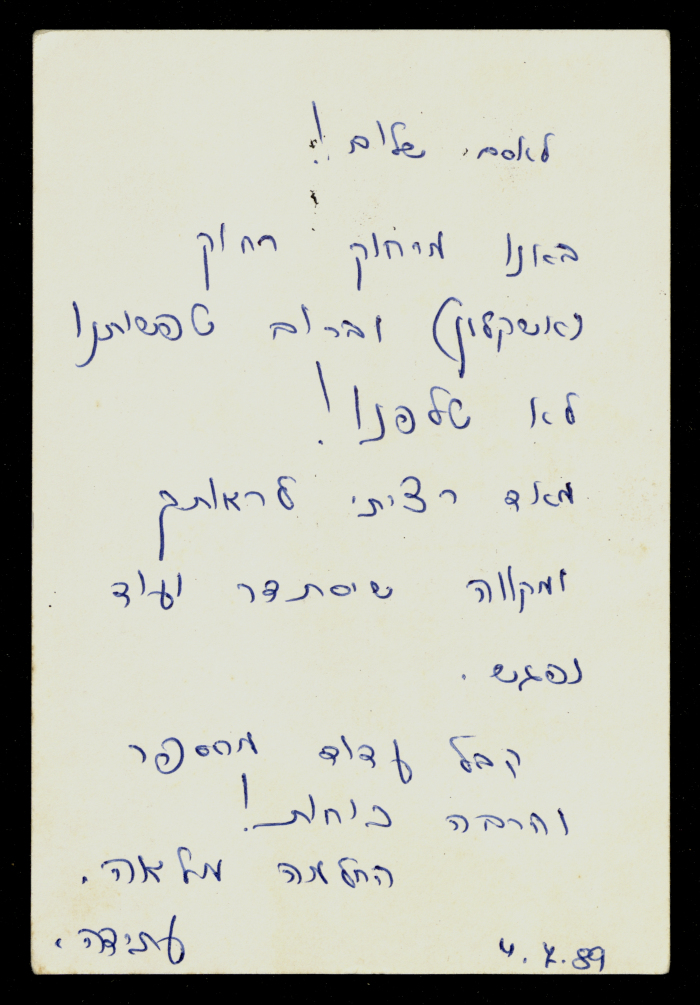 לאסם שלום!
באנו מרחוק רחוק
(אשקלון) וברוב טפשותנו
לא טלפנו!
מאד רציתי לראותך
ומקווה שיסתדר ועוד
נפגש.
קבל עדוד מהספר
והרבה כוחות!
החלמה מלאה.
עתידה.
4.7.89